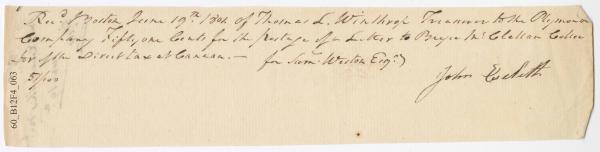 Rec,d Boston June 19th 1804 of Thomas L. Winthrop Treasurer to the Plymouth
Company Fifty one Cents for the postage of a Letter to Bryce McClellan Collec
tor of the Direct tax at Canaan. — for Saml Weston Esqr)
51/100
John Ecketh
60_B12F4_063